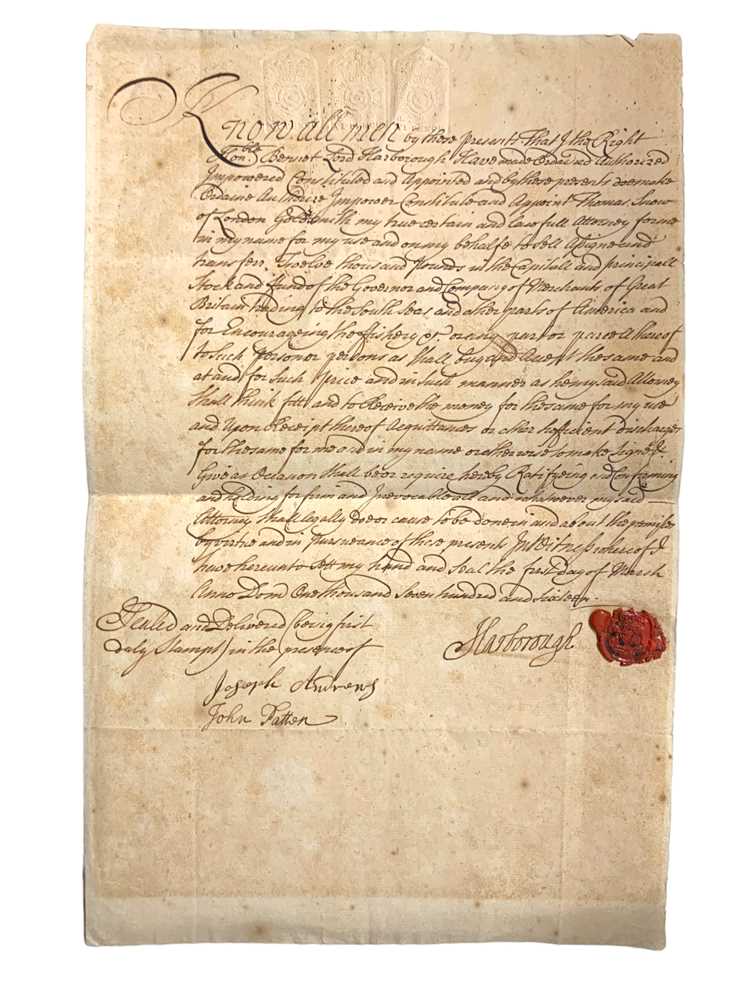 Know all men by these presents That I the Right
Hon.ble Bennet Lord Harborough Have made Ordained Authorized
Impowered Constituted and Appointed and by these presents doe make
Ordaine Authorize Impower Constitute and Appoint Thomas Snow
of London Goldsmith my true certain and lawfull Attorney for me
in my name for my use and on my behalfe to sell Assigne and
transferr Twelve thousand pounds in the Capitall and principall
Stock and ffund of the Governor and Company of Merchants of Great
Britain trading to the South Seas and other parts of America and
for Encourageing the ffishery &c. or any part or parcell thereof
to such person or persons as shall buy and Accept the same and
at and for such Price and in such manner as he my said Attorney
shall think fitt and to Receive the money for the same for my use
and Upon Receipt thereof Acquittances or other sufficient discharges
for the same for me and in my name or otherwise to make Signe &
Give as Occasion shall be or require hereby Ratifyeing and Confirming
and holding for firm and Irrevocable all and whatsoever my said
Attorney shall legally doe or cause to be done in and about the premisses
by virtue and in pursuance of these presents In Witness whereof I
have hereunto sett my hand and seal the first day of March
Anno Dom One thousand Seven hundred and sixteen.
Sealed and Delivered (being first
duly Stampt) in the presence of
Harborough
Joseph Andrews
John Patten